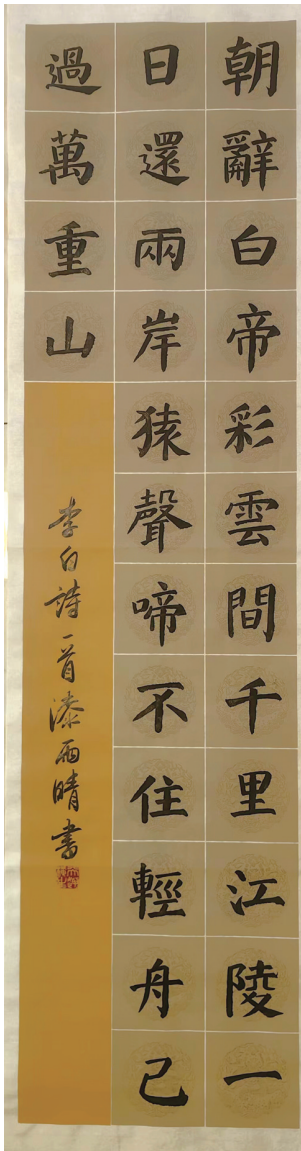 朝辭白帝彩雲間千里江陵一
日還兩岸猿聲啼不住輕舟已
過萬重山
李白詩一首漆雨晴書